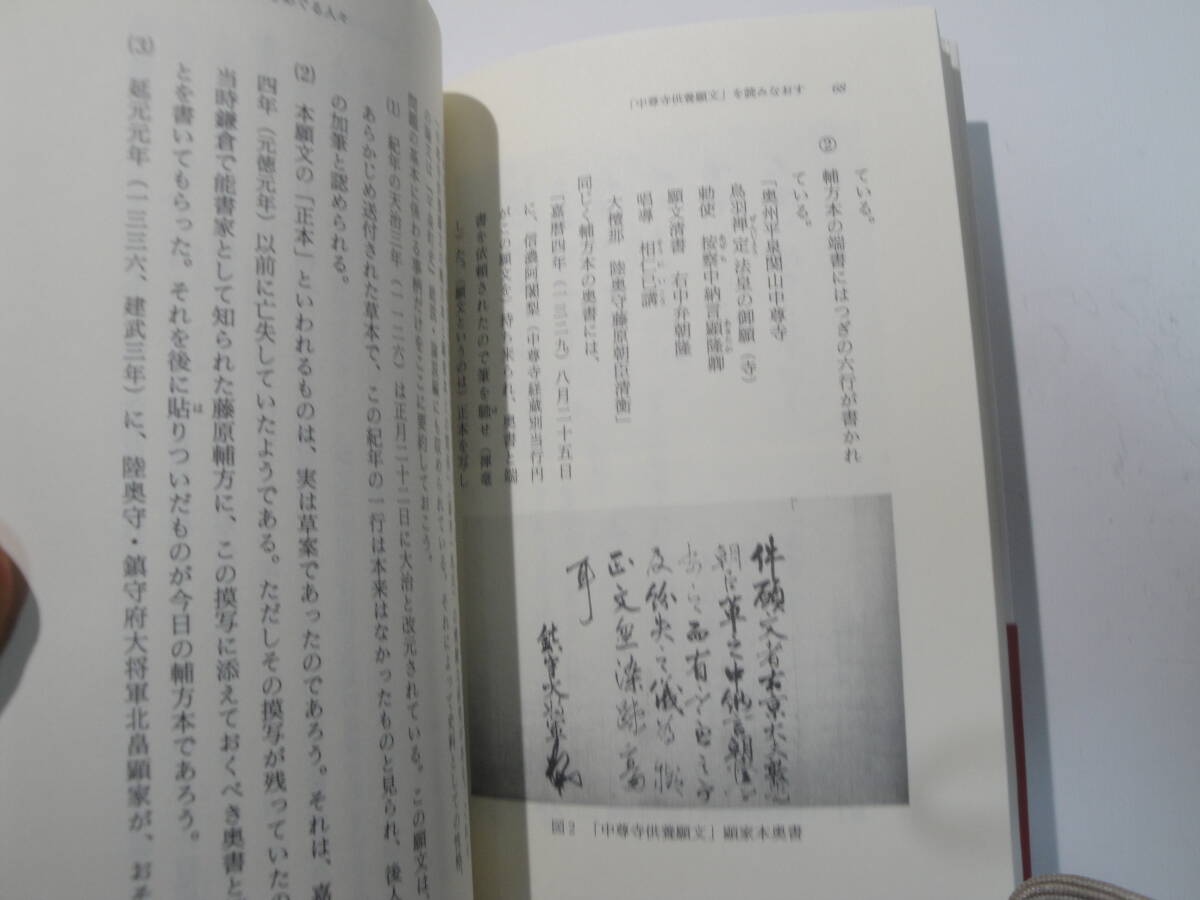 「中尊寺供養願文」を読みなおす
68
ている。
② 輔方本の端書にはつぎの六行が書かれ
ている。
「奥州平泉関山中尊寺
鳥羽禅定法皇の御願（寺）
勅使　按察中納言顕隆卿
願文清書　右中弁朝隆
唱導　相仁已講
大檀那　陸奥守藤原朝臣清衡」
同じく輔方本の奥書には、
「嘉暦四年（一三二九）八月二十五日
に、信濃阿闍梨（中尊寺経蔵別当行円
がこの願文を）持ち来られ、奥書と端
書を依頼されたので筆を馳せ（禅竜
した。願文というのは）正本を写し
図2　「中尊寺供養願文」顕家本奥書
めぐる人々
問題の基本に係わる事柄だけをここに要約しておこう。
(1) 紀年の天治三年（一一二六）は正月二十二日に大治と改元されている。この願文は、
あらかじめ送付された草本で、この紀年の一行は本来はなかったものと見られ、後人
の加筆と認められる。
(2) 本願文の「正本」といわれるものは、実は草案であったのであろう。それは、嘉
四年（元徳元年）以前に亡失していたようである。ただしその摸写が残っていたの
当時鎌倉で能書家として知られた藤原輔方に、この摸写に添えておくべき奥書と
とを書いてもらった。それを後に貼りついだものが今日の輔方本であろう。
(3) 延元元年（一三三六、建武三年）に、陸奥守・鎮守府大将軍北畠顕家が、おそ